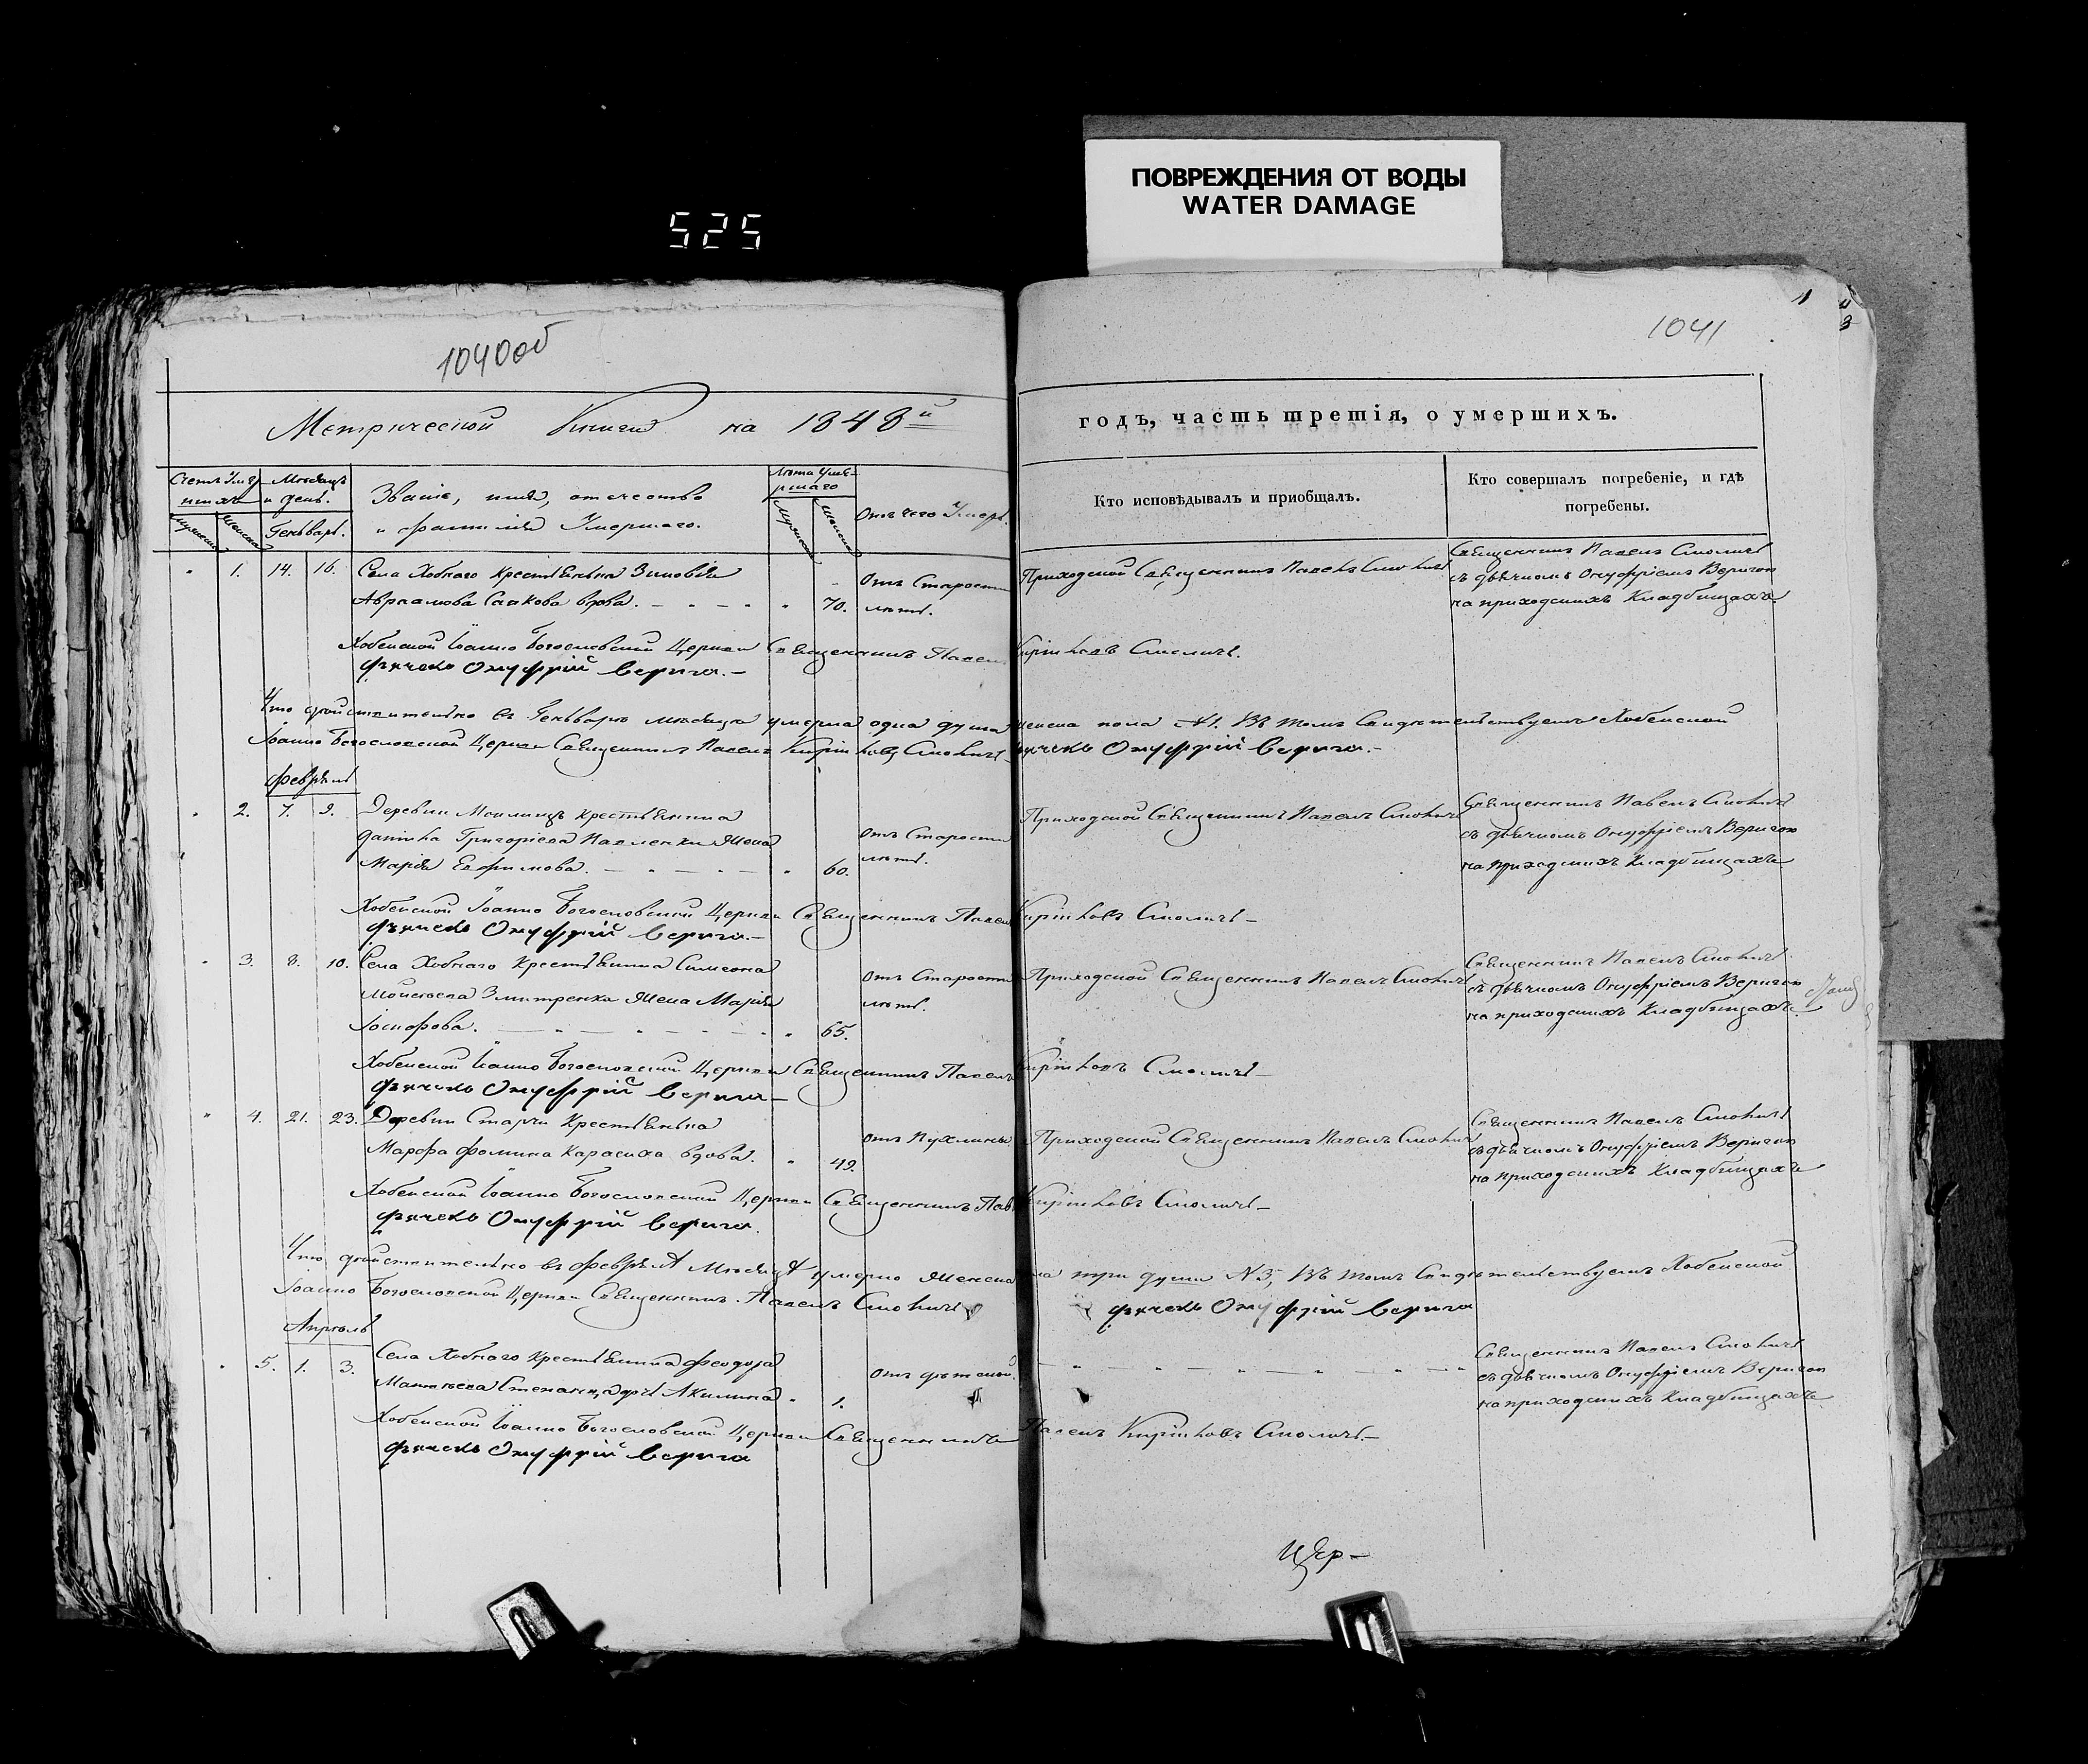 ПОВРЕЖДЕНИЯ ОТ ВОДЫ
WATER DAMAGE
525
1040об
Метрической Книги на 1848й
Звание, имя, отечество
и фамилія Умершаго.
Лѣта Уме-
ршаго
Отъ чего Умеръ.
Мѣсяцъ
и день.
Генварь.
1. 14. 16. Села Хобнаго крестьянка Зиновія
Авраамова вдова. 70. Отъ Старости
лѣтъ.
Хобенской Іоанно Богословской Церкви Священникъ Павелъ
Дьячекъ Онуфрій Верига.
Что действительно въ Генварѣ мѣсяцѣ умерла одна душа
Іоанно Богословской Церкви Священникъ Павелъ Смоличъ
Февраль
2. 7. 9. Деревни крестьянина
Григоріева Павленка жена
Марія Евфимова. 60. отъ Старости
лѣтъ.
Хобенской Іоанно Богословской Церкви Священникъ Павелъ
Дьячекъ Онуфрій Верига.
3. 8. 10. Села Хобнаго крестьянина Симеона
Мойсеева Змитренка жена Марія
Іосифова. 65. отъ Старости
лѣтъ.
Хобенской Іоанно Богословской Церкви Священникъ Павелъ
Дьячекъ Онуфрій Верига
4. 21. 23. Деревни крестьянка
Марфа Фомина Карасиха вдова. 49. отъ Пухлины
Хобенской Іоанно Богословской Церкви Священникъ Пав
Дьячекъ Онуфрій Верига.
Что действительно въ Февралѣ Мѣсяцѣ умерло женска
Іоанно Богословской Церкви Священникъ Павелъ Смоличъ
Апрѣль
5. 1. 3. Села Хобнаго крестьянина Феодора
Матвѣева дочь Акилина 1. отъ дѣтской.
Хобенской Іоанно Богословской Церкви Священникъ
Дьячекъ Онуфрій Верига
1041
годъ, часть третія, о умершихъ.
Кто исповѣдывалъ и приобщалъ.
Кто совершалъ погребеніе, и гдѣ
погребены.
Приходской Священникъ Павелъ Смоличъ
Священникъ Павелъ Смоличъ
съ дьячкомъ Онуфріемъ Веригою
на приходскихъ Кладбищахъ.
Смоличъ.
женска пола №1. Въ томъ Свидѣтельствуетъ Хобенской
Дьячекъ Онуфрій Верига.
Приходской Священникъ Павелъ Смоличъ
Священникъ Павелъ Смоличъ
съ дьячкомъ Онуфріемъ Веригою
на приходскихъ Кладбищахъ
Смоличъ
Приходской Священникъ Павелъ Смоличъ
Священникъ Павелъ Смоличъ
съ дьячкомъ Онуфріемъ Веригою
на приходскихъ Кладбищахъ.
Смоличъ
Приходской Священникъ Павелъ Смоличъ
Священникъ Павелъ Смоличъ
съ дьячкомъ Онуфріемъ Веригою
на приходскихъ Кладбищахъ
Смоличъ
ла три души №3, Въ томъ Свидѣтельствуетъ Хобенской
Дьячекъ Онуфрій Верига
Священникъ Павелъ Смоличъ
съ дьячкомъ Онуфріемъ Веригою
на приходскихъ Кладбищахъ
Павелъ Смоличъ.
Цер-